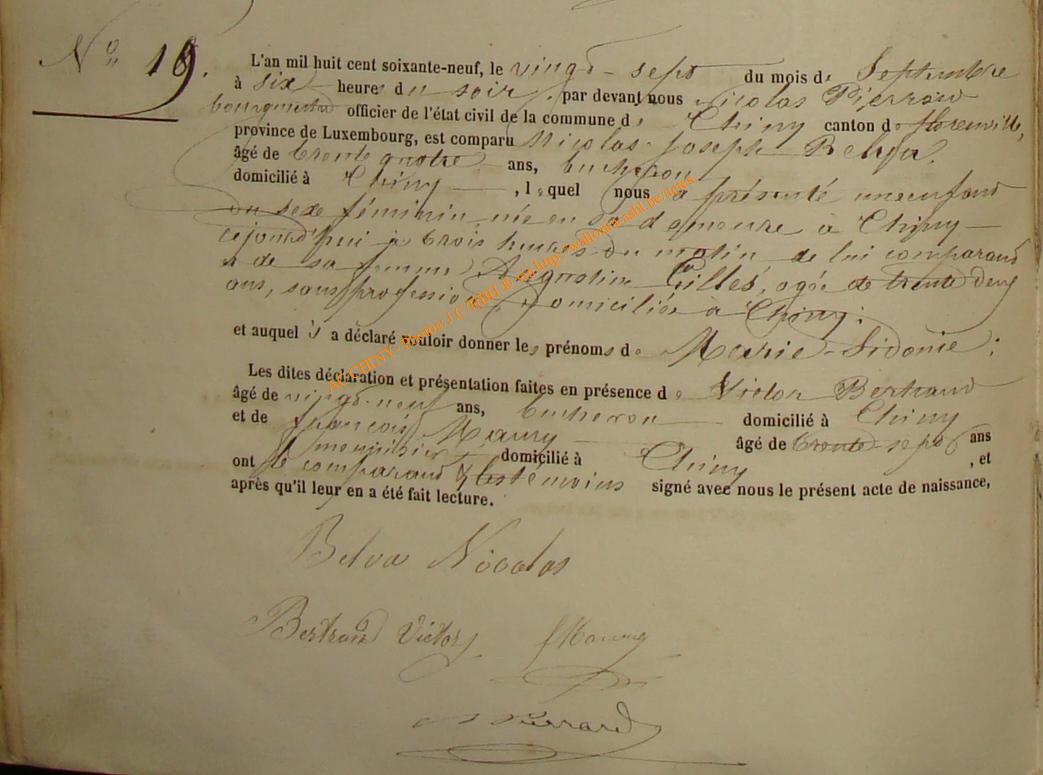 N° 19.
L'an mil huit cent soixante-neuf, le vingt-sept du mois de Septembre
à six heures du soir, par devant nous Nicolas Pierrard
bourgmestre officier de l'état civil de la commune de Chiny canton de florenville,
province de Luxembourg, est comparu Nicolas-Joseph Belva.
âgé de trente quatre ans, bucheron
domicilié à Chiny, lequel nous a présenté un enfant
du sexe féminin née en sa demeure à Chiny
cejourd'hui à trois heures du matin de lui comparant
& de sa femme Augustine Gilles, agée de trente deux
ans, sans profession, domiciliée à Chiny.
et auquel il a déclaré vouloir donner les prénoms de Marie-Sidonie;
Les dites déclaration et présentation faites en présence de Victor Bertrand
âgé de vingt-neuf ans, bucheron domicilié à Chiny
et de françois Maury âgé de trente-sept ans
menuisier domicilié à Chiny, et
ont le comparant & les témoins signé avec nous le présent acte de naissance,
après qu'il leur en a été fait lecture.
Belva Nicolas
Bertrand Victor fMaury
N Pierrard